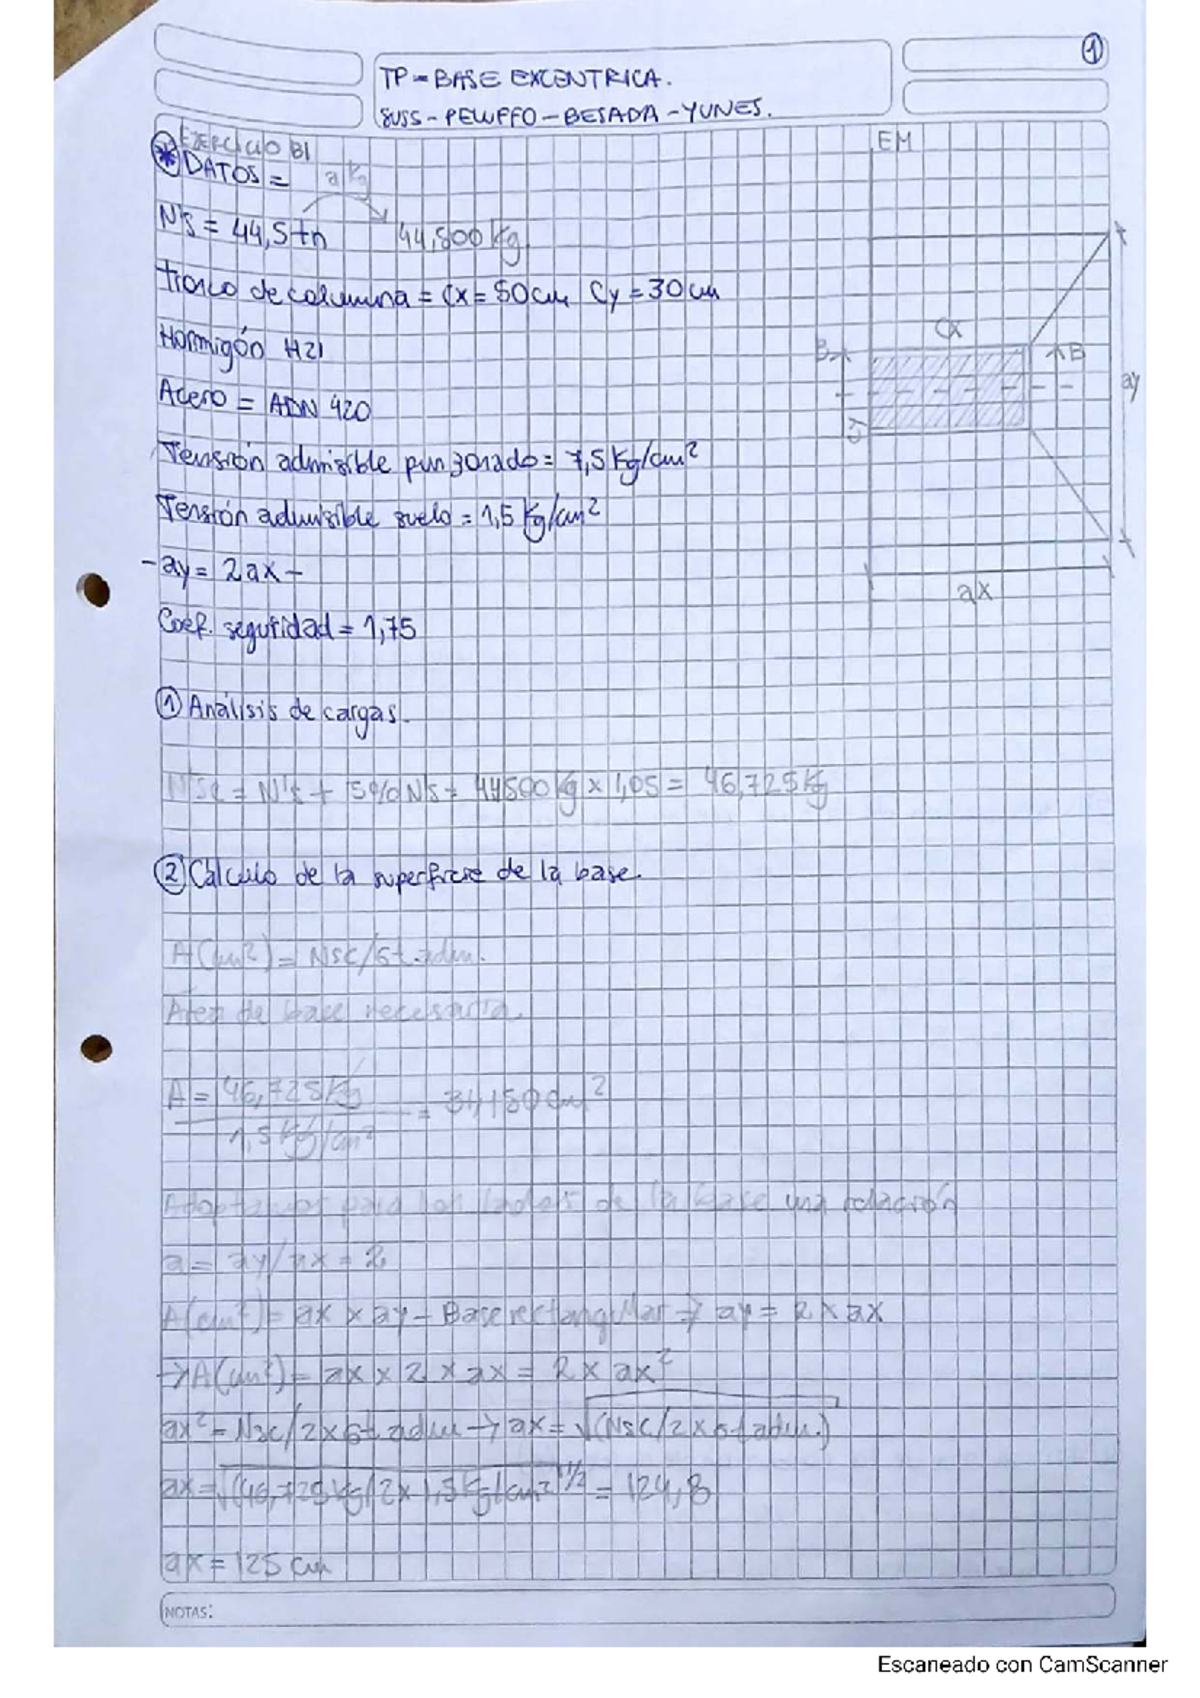 1
TP - BASE EXCENTRICA.
SUSS - PELUFFO - BESADA - YUNES.
EJERCICIO B1
* DATOS =
a Kg
N's = 44,5 tn 44,500 Kg
Tronco de columna = Cx = 50 cm Cy = 30 cm
Hormigón H21
Acero = ADN 420
Tensión admisible punzonado = 7,5 Kg/cm²
Tensión admisible suelo = 1,5 Kg/cm²
- ay = 2ax -
Coef. seguridad = 1,75
EM
Cx
B
B
ay
ax
① Análisis de cargas.
N'sc = N's + 5% N's = 44500 Kg x 1,05 = 46,725 Kg
② Calculo de la superficie de la base.
A(cm²) = Nsc/σt adm.
Área de base necesaria.
A = 46,725 Kg
1,5 Kg/cm²
= 31,150 cm²
Adoptamos para los lados de la base una relación
a = ay/ax = 2
A(cm²) = ax x ay - Base rectangular → ay = 2 x ax
→ A(cm²) = ax x 2 x ax = 2 x ax²
ax² = Nsc/2 x σt adm → ax = √(Nsc/2 x σt adm.)
ax = √(46,725 Kg/2 x 1,5 Kg/cm²)^1/2 = 124,8
ax = 125 cm
NOTAS:
Escaneado con CamScanner